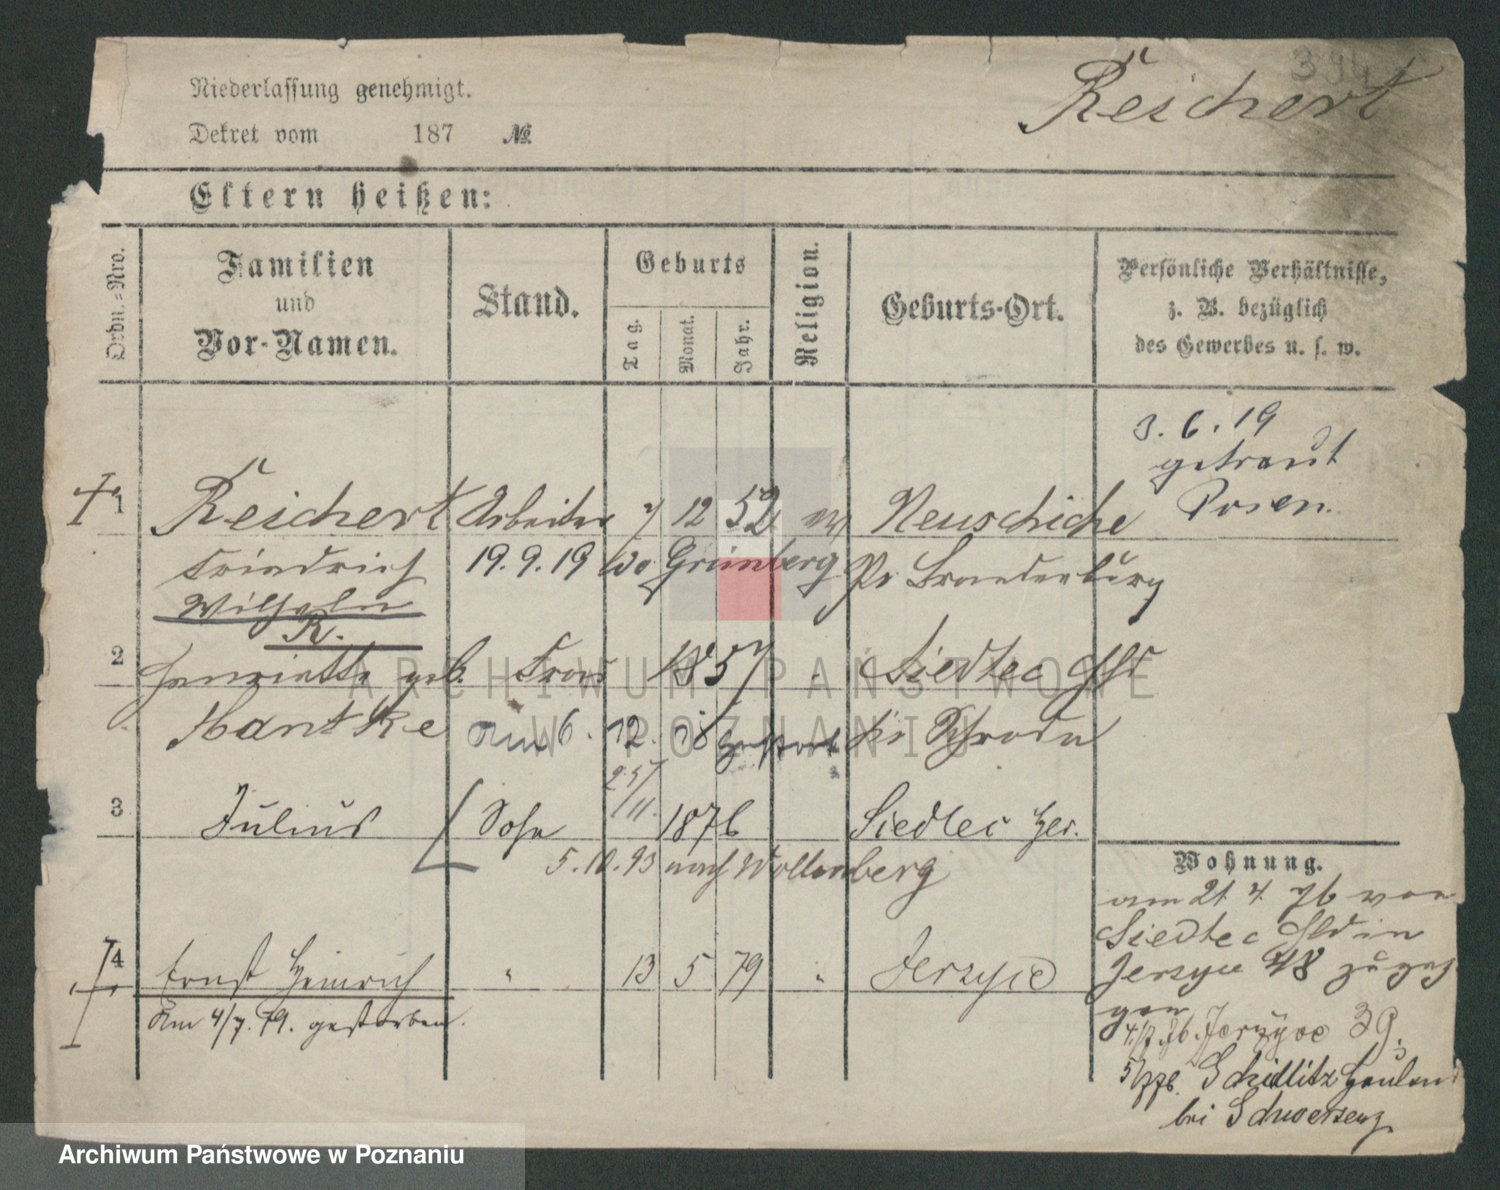 Niederlassung genehmigt.
Dekret vom 187 №
394
Reichert
Eltern heißen:
Ordn.-Nro.
Familien
und
Vor-Namen.
Stand.
Geburts
Tag.
Monat.
Jahr.
Religion.
Geburts-Ort.
Persönliche Verhältnisse,
z. B. bezüglich
des Gewerbes u. s. w.
3.6.19
getraut
Posen.
1 Reichert Arbeiter 7 12 52 ev Neuschiche
Friedrich 19.9.19 Grünberg Pr Brandenburg
Wilhelm
R.
2 Henriette geb. Frau 1857 " Siedlec
Hantke am 6. 12. 78 Kr Schroda
25/
/11.
3 Julius Sohn 1876 Siedlec
5.10.93 nach Wollenberg
4 Ernst Heinrich " 13 5 79 " Jerzyce
Am 4/7. 79. gestorben.
Wohnung.
am 21 4 76 von
Siedlec in
Jerzyce 48 zuge
gen
Jerzyce 39.
Schidlitz
bei Schwersenz
ARCHIWUM PAŃSTWOWE
W POZNANIU
Archiwum Państwowe w Poznaniu